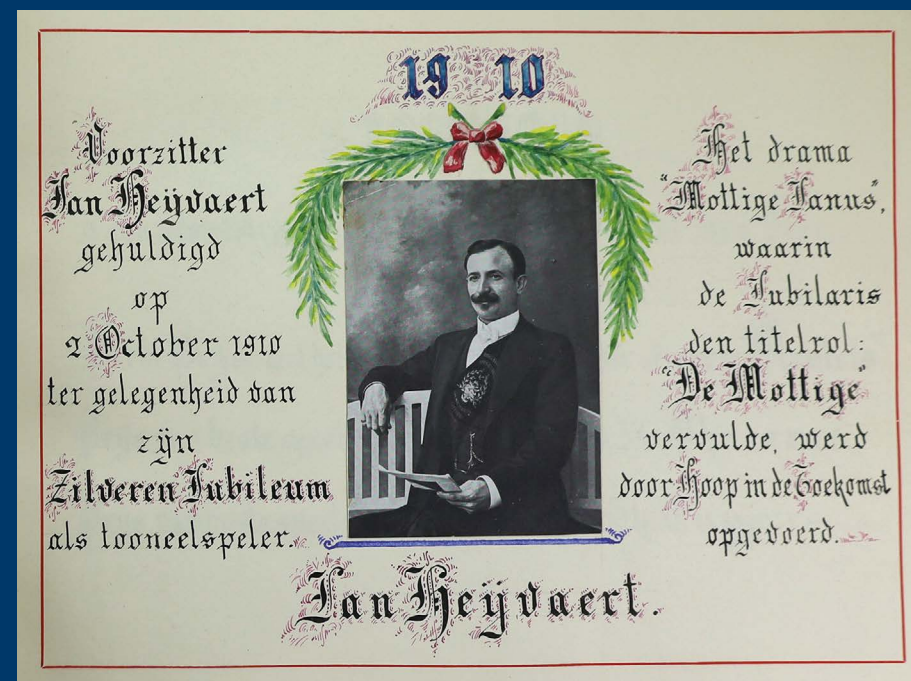 19 10
Voorzitter
Jan Heijvaert
gehuldigd
op
2 October 1910
ter gelegenheid van
zijn
Zilveren Jubileum
als tooneelspeler.
Het drama
"Mottige Janus",
waarin
de Jubilaris
den titelrol:
"De Mottige"
vervulde, werd
door Hoop in de Toekomst
opgevoerd.
Jan Heijvaert.